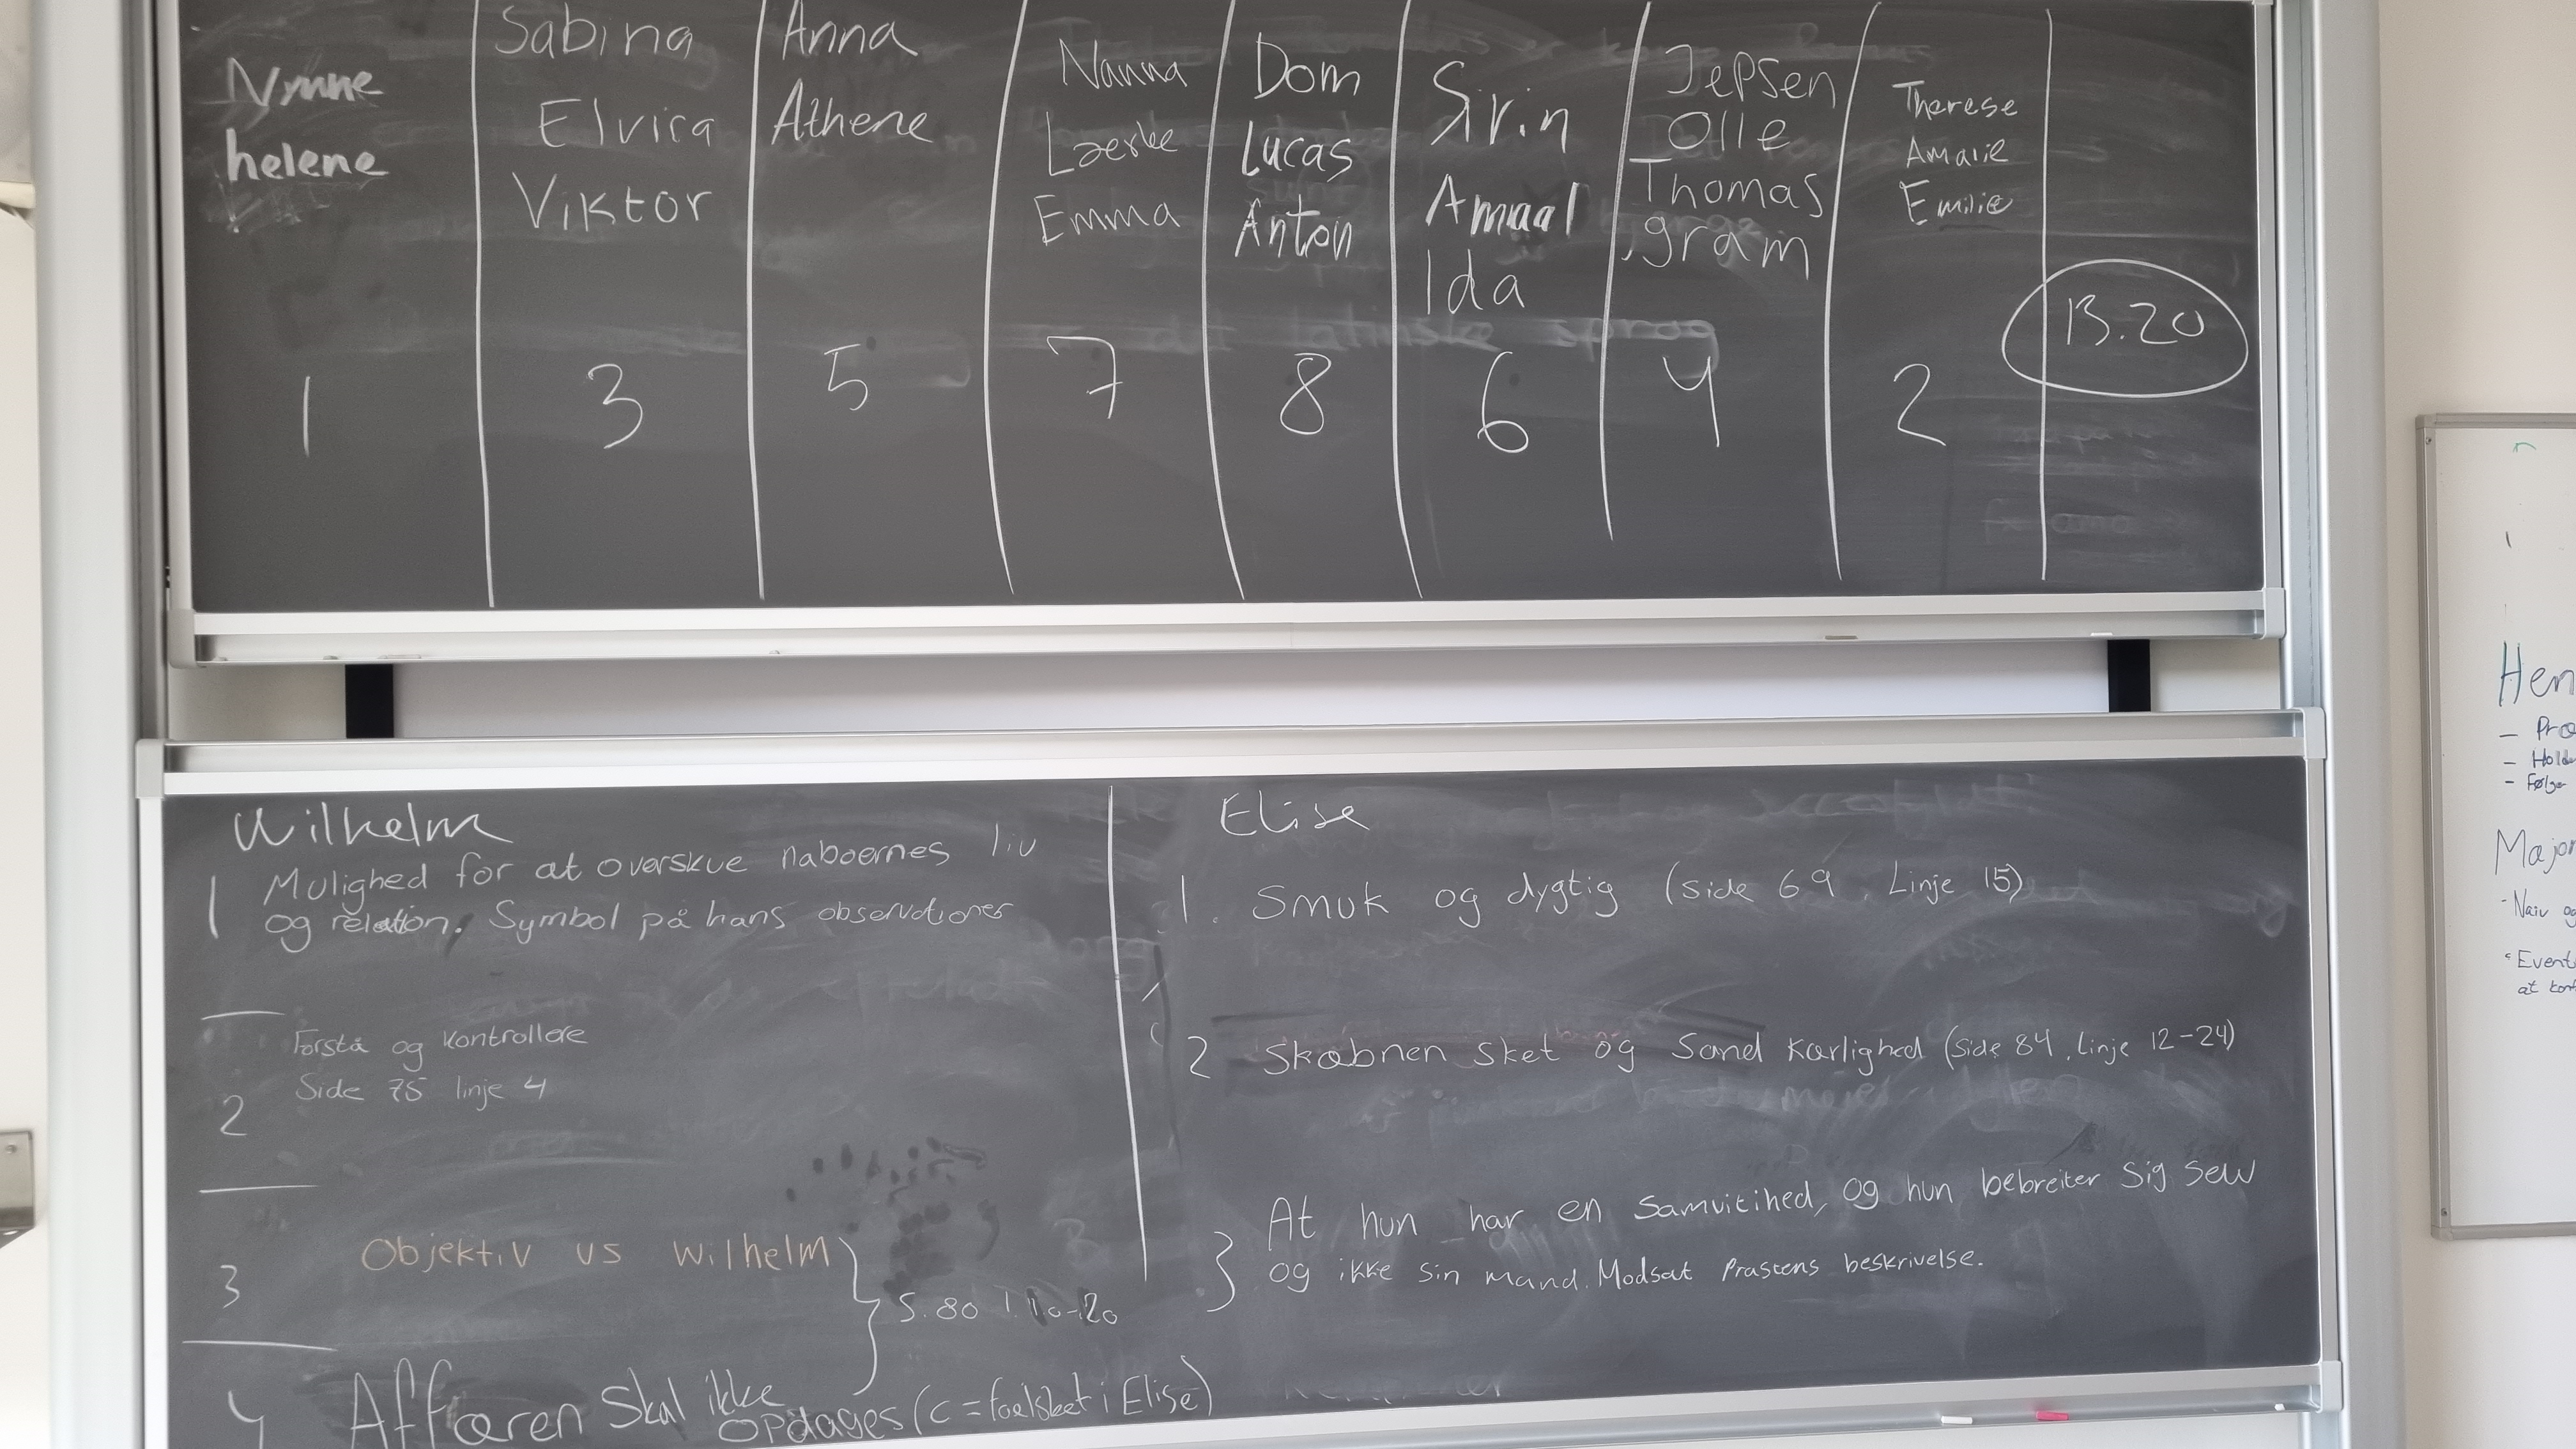 Nynne
helene
1
Sabina
Elvira
Viktor
3
Anna
Athene
5
Nanna
Laerke
Emma
7
Dom
Lucas
Anton
8
Sirin
Amaal
Ida
6
Jepsen
Olle
Thomas
gram
4
Therese
Amalie
Emilie
2
13.20
Wilhelm
1 Mulighed for at overskue naboernes liv
og relation. Symbol på hans observationer
Forstå og kontrollere
Side 75 linje 4
2
3 Objektiv vs Wilhelm
S. 80 l 10-20
4 Affæren skal ikke
opdages (c = forelsket i Elise)
Elise
1. Smuk og dygtig (side 69, Linje 15)
2 Skæbnen sket og Sand Kærlighed (Side 84, linje 12-24)
3 At hun har en samvitihed, og hun bebreiter sig selv
og ikke sin mand. Modsat Præstens beskrivelse.
Hen
- Præ
- Hold
- Følge
Major
- Naiv og
Event
at kon